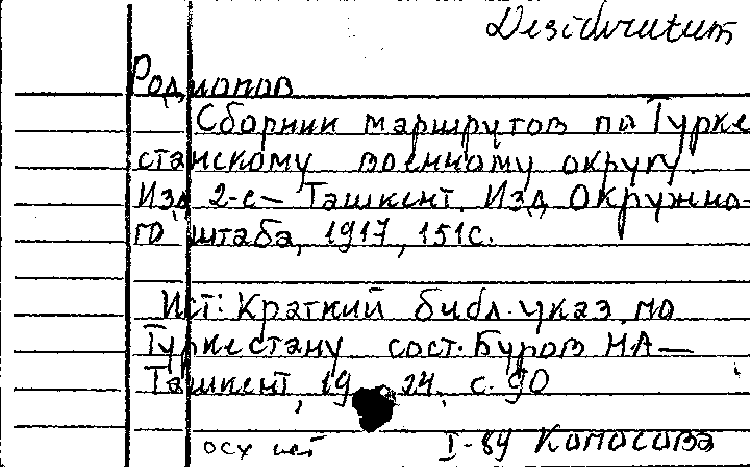 Desideratum
Родионов
Сборник маршрутов по Турке
станскому военному округу.
Изд 2-е — Ташкент. Изд Окружно-
го штаба, 1917, 151с.
Ист: Краткий библ. указ. по
Туркестану сост. Буров НА —
Ташкент, 1924, с. 90
I-89 Колосова